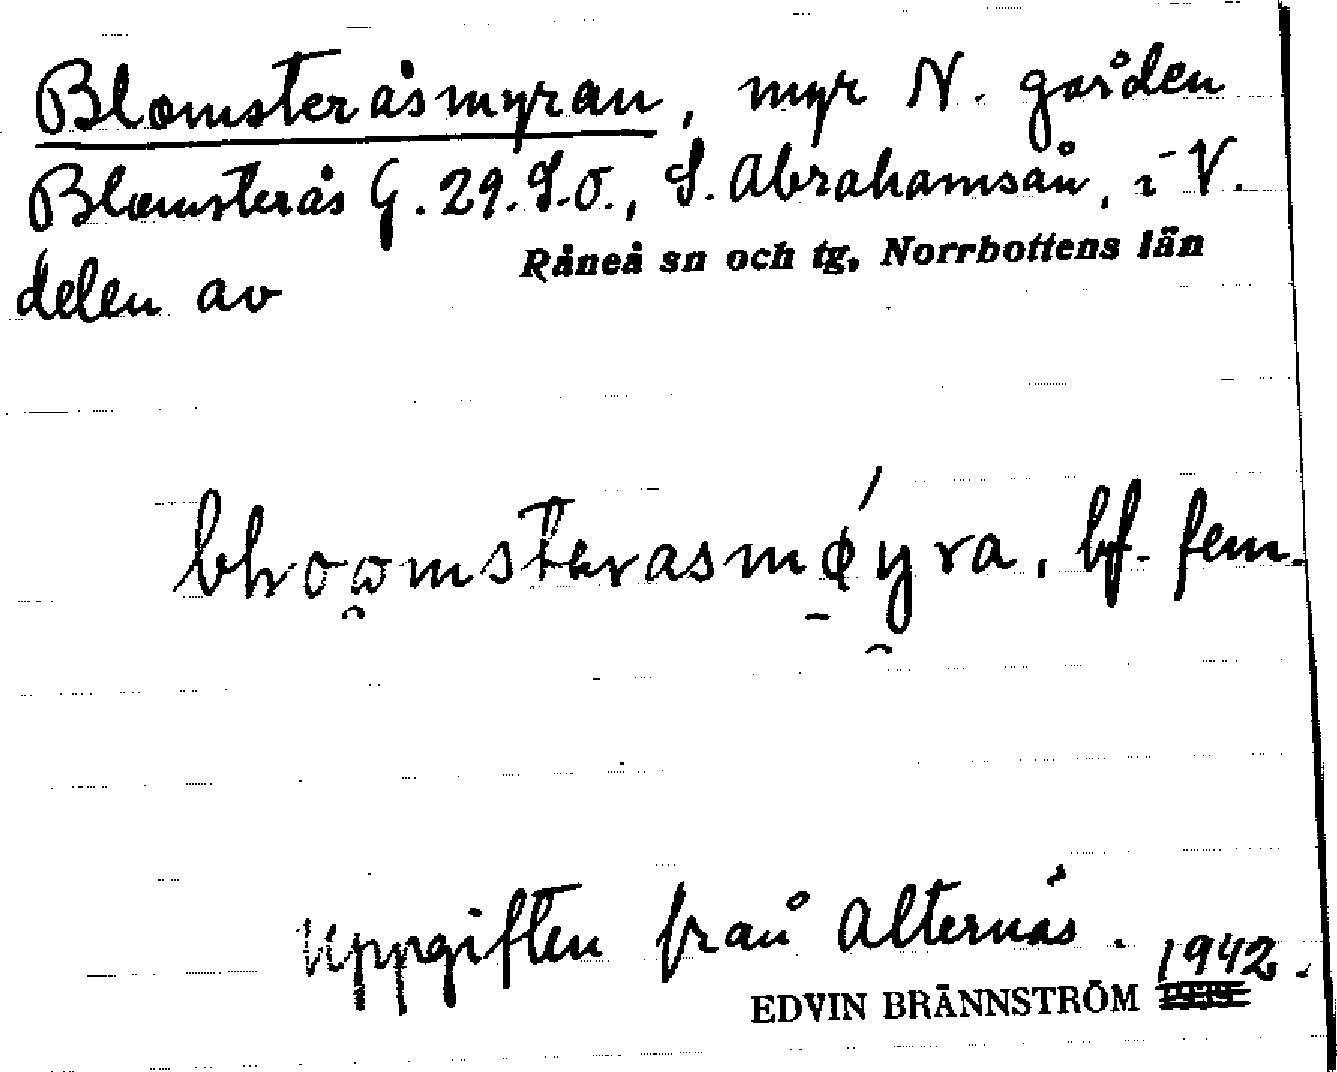 Blomsteråsmyran, myr N. gården
Blomsterås G. 29. S.O., S. Abrahamsån, i V.
delen av
Råneå sn och tg, Norrbottens län
bf. fem.
Uppgiften från Alternäs. 1942.
EDVIN BRÄNNSTRÖM